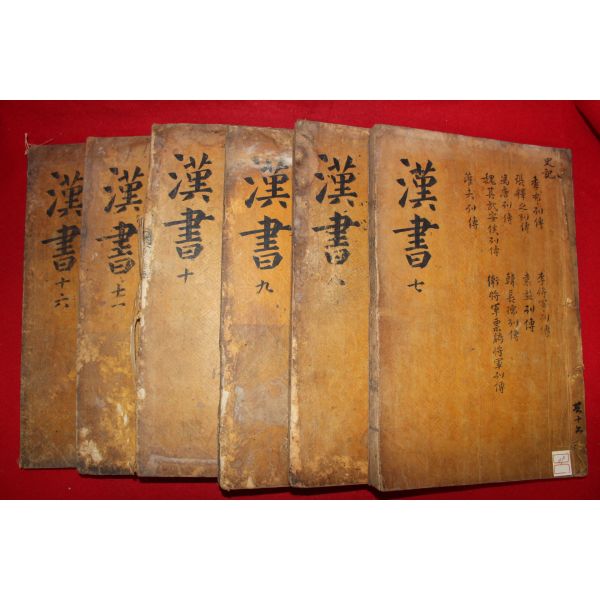 漢書 七
史記
季布列傳
張釋之列傳
馮唐列傳
魏其武安侯列傳
灌夫列傳
李將軍列傳
袁盎列傳
韓長孺列傳
衛將軍票騎將軍列傳
共十六
漢書 八
漢書 九
漢書 十
漢書 十一
漢書 十六